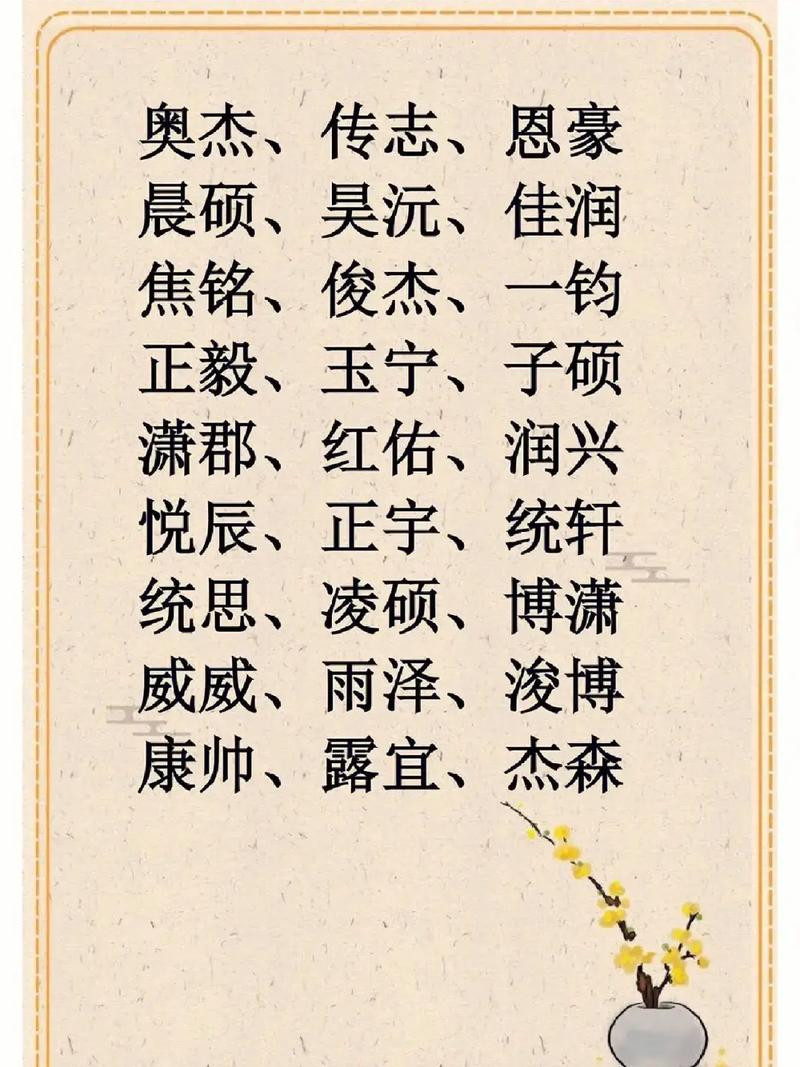 奥杰、传志、恩豪
晨硕、昊沅、佳润
焦铭、俊杰、一钧
正毅、玉宁、子硕
潇郡、红佑、润兴
悦辰、正宇、统轩
统思、凌硕、博潇
威威、雨泽、浚博
康帅、露宜、杰森